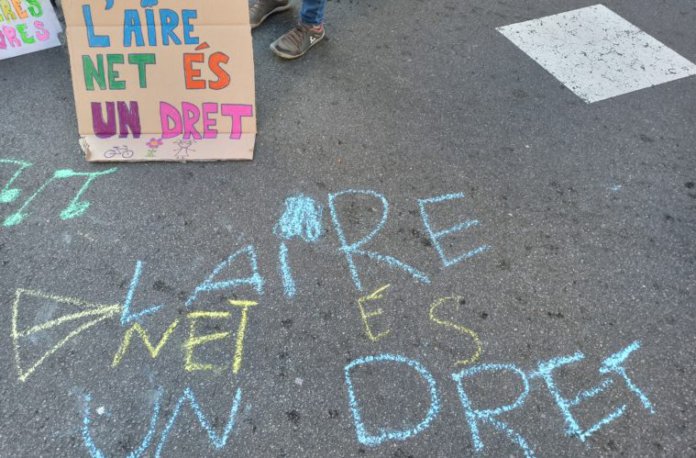 L'AIRE
NET ÉS
UN DRET
LAIRE
NET ÉS
UN DRET